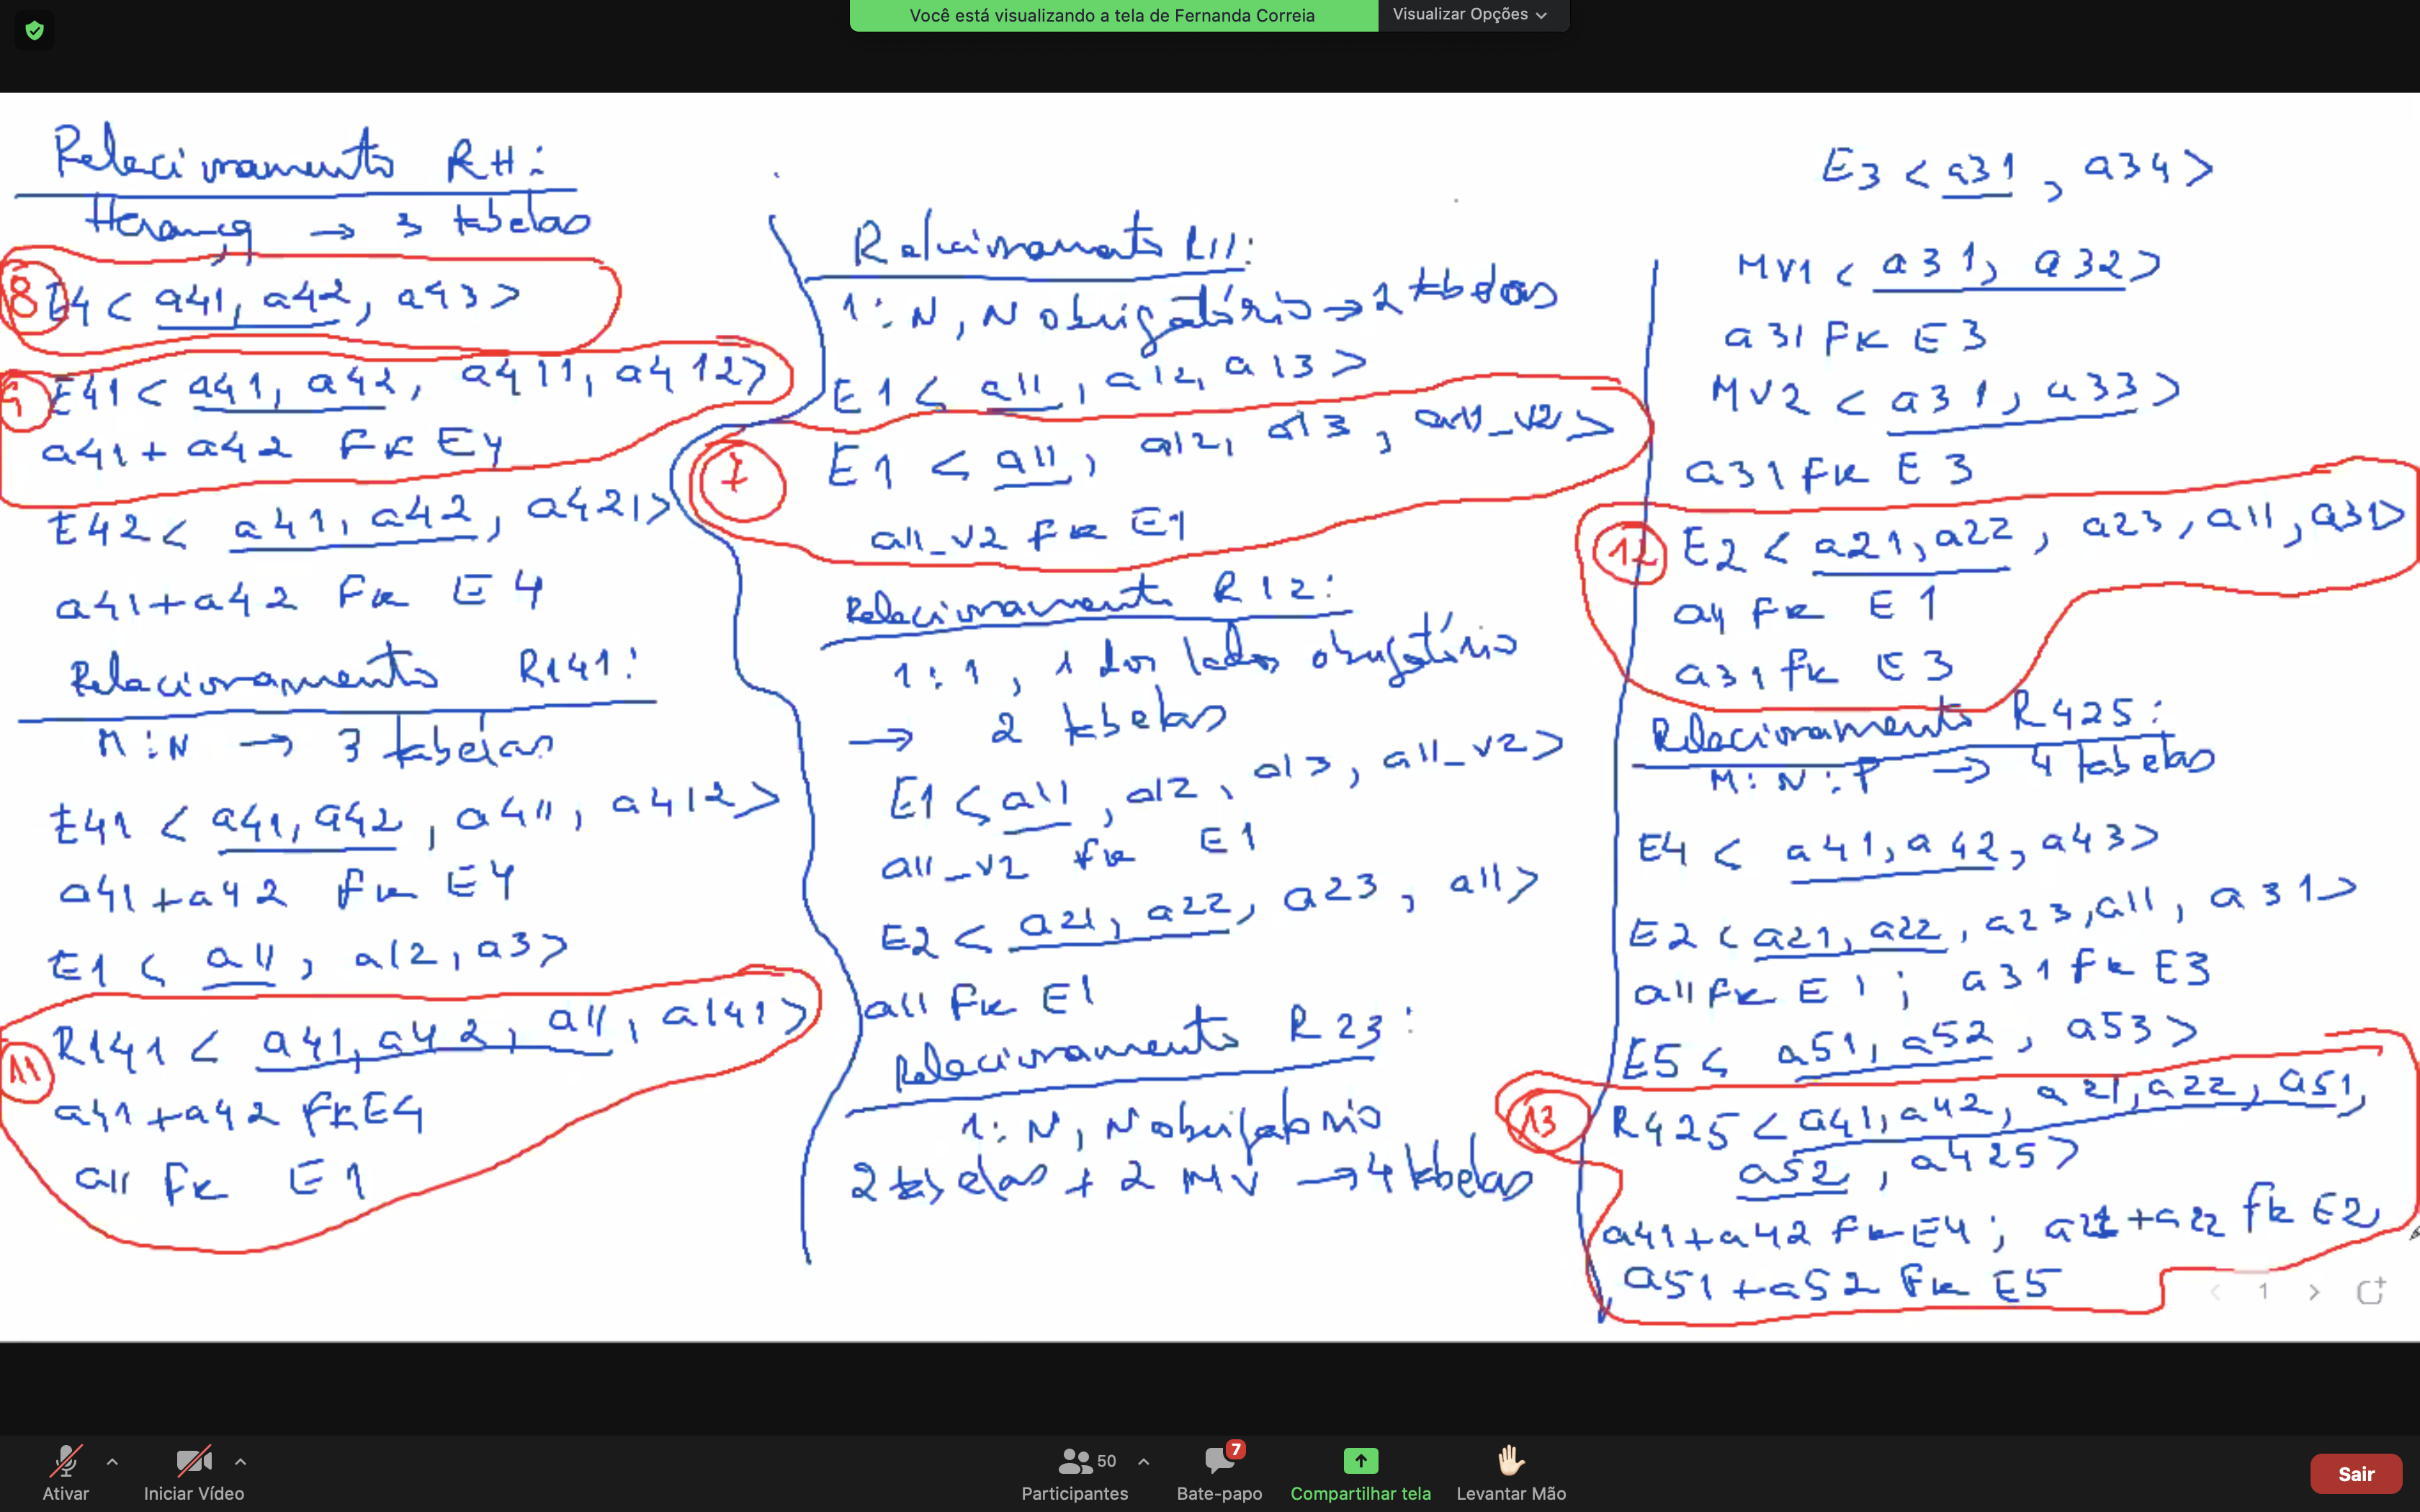 Você está visualizando a tela de Fernanda Correia
Visualizar Opções
Relacionamento RH:
Herança → 3 tabelas
8 E4 < a41, a42, a43 >
E41 < a41, a42, a411, a412 >
a41 + a42 FK E4
E42 < a41, a42, a421 >
a41 + a42 FK E4
Relacionamento R141:
M:N → 3 tabelas
E41 < a41, a42, a411, a412 >
a41 + a42 FK E4
E1 < a11, a12, a3 >
11 R141 < a41, a42, a11, a141 >
a41 + a42 FK E4
a11 FK E1
Relacionamento R11:
1:N, N obrigatório → 2 tabelas
E1 < a11, a12, a13 >
7 E1 < a11, a12, a13, a11_v2 >
a11_v2 FK E1
Relacionamento R12:
1:1, 1 dos lados obrigatório
→ 2 tabelas
E1 < a11, a12, a13, a11_v2 >
a11_v2 FK E1
E2 < a21, a22, a23, a11 >
a11 FK E1
Relacionamento R23:
1:N, N obrigatório
2 tabelas + 2 MV → 4 tabelas
E3 < a31, a34 >
MV1 < a31, a32 >
a31 FK E3
MV2 < a31, a33 >
a31 FK E3
12 E2 < a21, a22, a23, a11, a31 >
a11 FK E1
a31 FK E3
Relacionamento R425:
M:N:P → 4 tabelas
E4 < a41, a42, a43 >
E2 < a21, a22, a23, a11, a31 >
a11 FK E1; a31 FK E3
E5 < a51, a52, a53 >
13 R425 < a41, a42, a21, a22, a51,
a52, a425 >
a41 + a42 FK E4; a21 + a22 FK E2,
a51 + a52 FK E5
1
7
50
Ativar
Iniciar Vídeo
Participantes
Bate-papo
Compartilhar tela
Levantar Mão
Sair